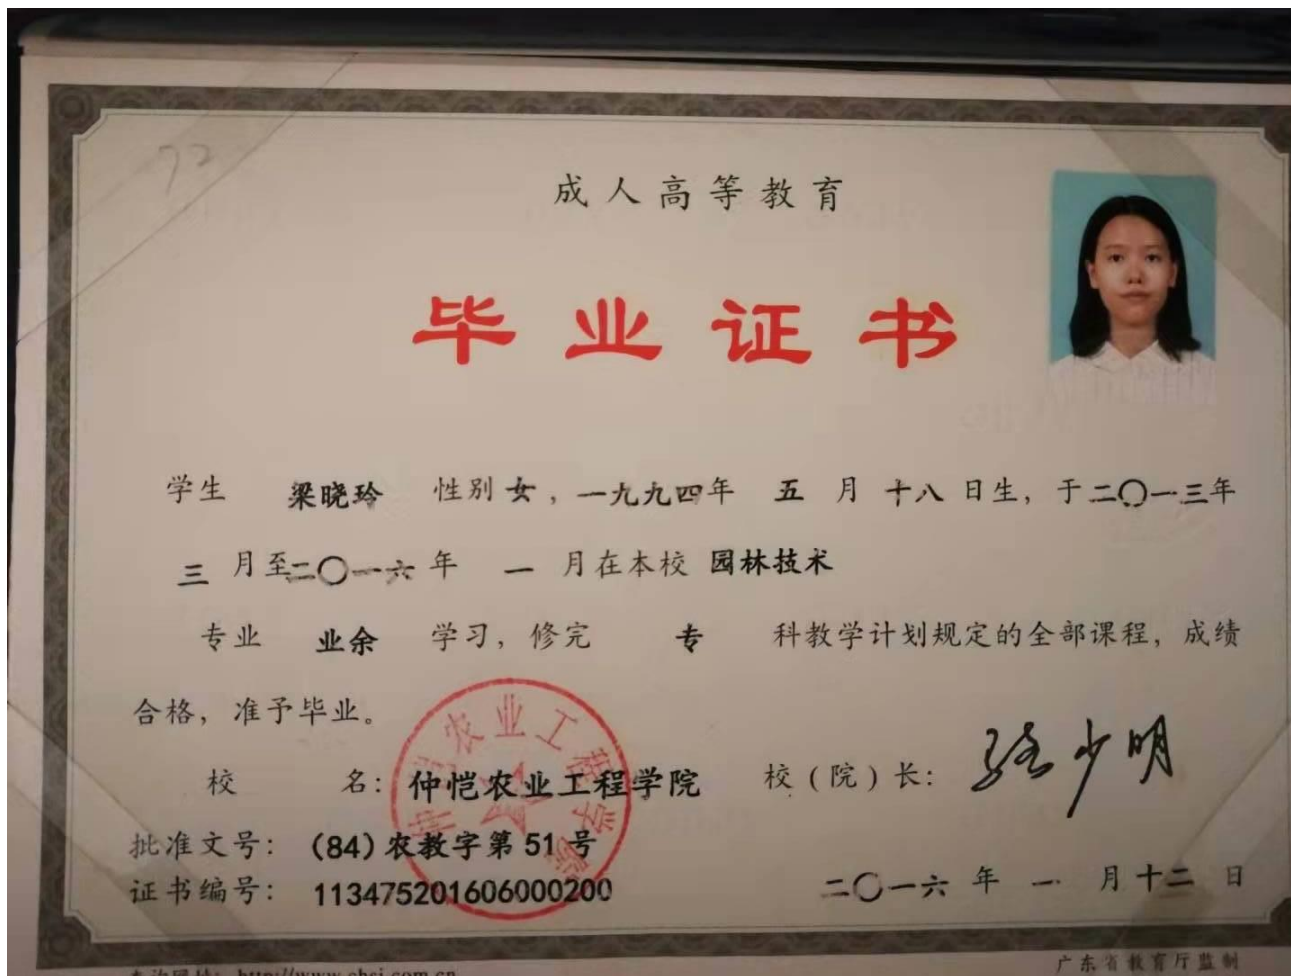 72
成人高等教育
毕业证书
学生 梁晓玲 性别女，一九九四年 五 月 十八 日生，于二〇一三年
三 月至二〇一六 年 一 月在本校 园林技术
专业 业余 学习，修完 专 科教学计划规定的全部课程，成绩
合格，准予毕业。
校 名：仲恺农业工程学院 校（院）长：骆少明
仲恺农业工程学院
批准文号：(84)农教字第51号
证书编号：113475201606000200 二〇一六 年 一 月十二 日
查询网址：http://www.chsi.com.cn 广东省教育厅监制